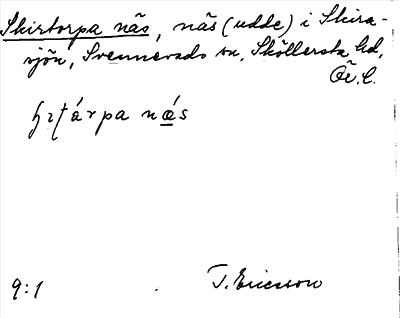 Skirtorpa näs, näs (udde) i Skira-
sjön, Svennevads sn, Sköllersta hd,
Ör. l.
ꞕıʈárpa nǽs
9:1 T. Ericsson